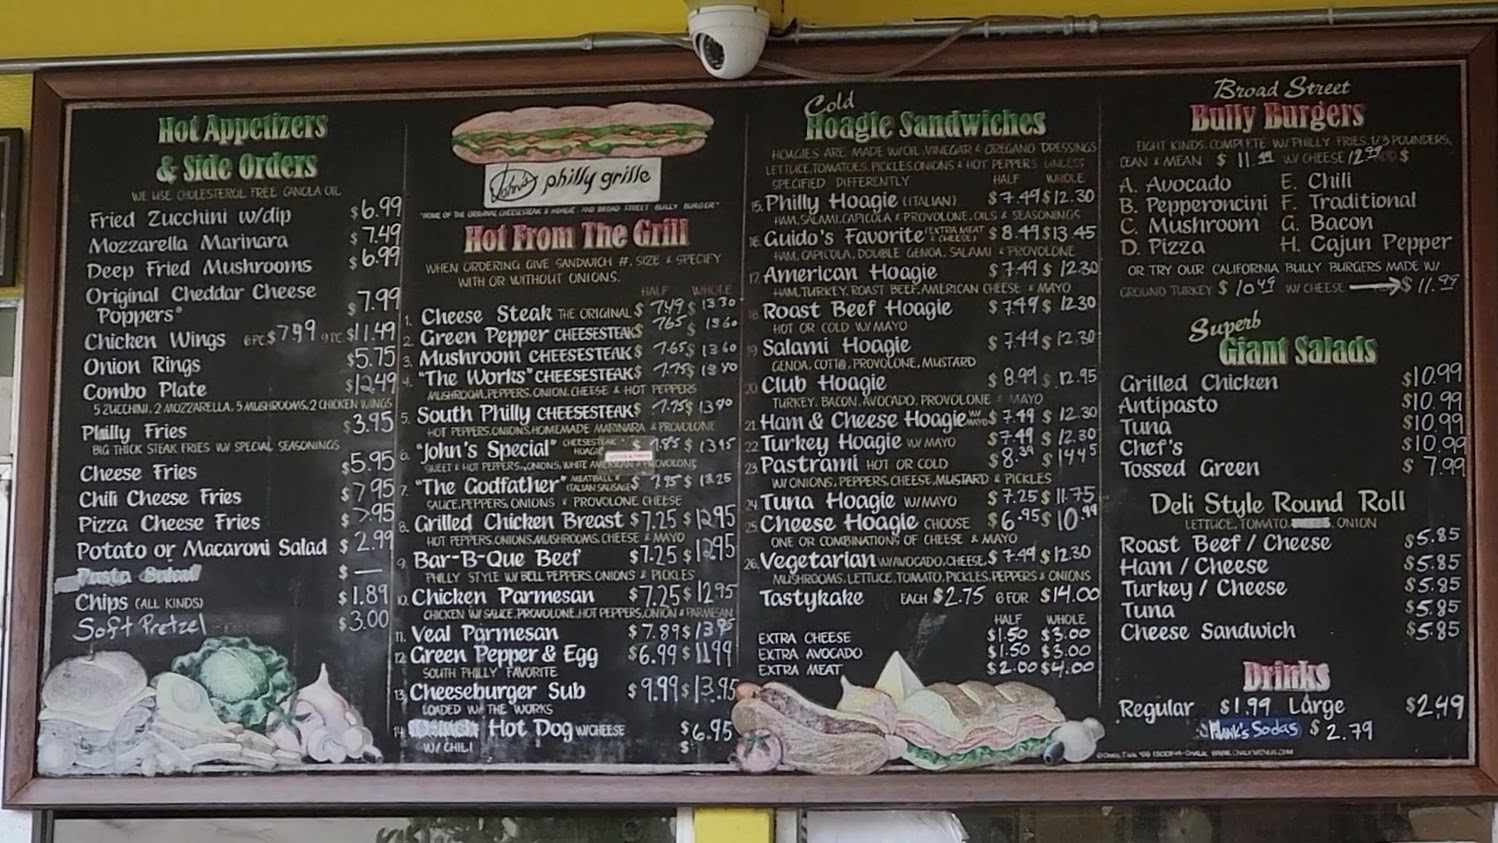 Hot Appetizers
& Side Orders
WE USE CHOLESTEROL FREE CANOLA OIL
Fried Zucchini w/dip $6.99
Mozzarella Marinara $7.49
Deep Fried Mushrooms $6.99
Original Cheddar Cheese
Poppers $7.99
Chicken Wings 6 PC $7.99 9 PC $11.49
Onion Rings $5.75
Combo Plate $12.49
5 ZUCCHINI, 2 MOZZARELLA, 5 MUSHROOMS, 2 CHICKEN WINGS
Philly Fries $3.95
BIG THICK STEAK FRIES W/ SPECIAL SEASONINGS
Cheese Fries $5.95
Chili Cheese Fries $7.95
Pizza Cheese Fries $7.95
Potato or Macaroni Salad $2.99
Pasta Salad $ —
Chips (ALL KINDS) $1.89
Soft Pretzel $3.00
John's philly grille
"HOME OF THE ORIGINAL CHEESESTEAK & HOAGIE AND BROAD STREET BULLY BURGER"
Hot From The Grill
WHEN ORDERING GIVE SANDWICH #, SIZE & SPECIFY
WITH OR WITHOUT ONIONS.
HALF WHOLE
1. Cheese Steak THE ORIGINAL $7.49 $13.30
2. Green Pepper CHEESESTEAK $7.65 $13.60
3. Mushroom CHEESESTEAK $7.65 $13.60
4. "The Works" CHEESESTEAK $7.75 $13.90
MUSHROOM, PEPPERS, ONION, CHEESE & HOT PEPPERS
5. South Philly CHEESESTEAK $7.75 $13.90
HOT PEPPERS, ONIONS, HOMEMADE MARINARA & PROVOLONE
6. "John's Special" CHEESESTEAK HOAGIE $7.85 $13.95
SWEET & HOT PEPPERS, ONIONS, WHITE AMERICAN & PROVOLONE
7. "The Godfather" MEATBALL & ITALIAN SAUSAGE $7.95 $13.25
SAUCE, PEPPERS, ONIONS & PROVOLONE CHEESE
8. Grilled Chicken Breast $7.25 $12.95
HOT PEPPERS, ONIONS, MUSHROOMS, CHEESE & MAYO
9. Bar-B-Que Beef $7.25 $12.95
PHILLY STYLE W/ BELL PEPPERS, ONIONS & PICKLES
10. Chicken Parmesan $7.25 $12.95
CHICKEN W/ SAUCE, PROVOLONE, HOT PEPPERS, ONION & PARMESAN
11. Veal Parmesan $7.89 $13.95
12. Green Pepper & Egg $6.99 $11.99
SOUTH PHILLY FAVORITE
13. Cheeseburger Sub $9.99 $13.95
LOADED W/ THE WORKS
14. Hot Dog W/CHEESE $6.95
W/ CHILI $
Cold
Hoagie Sandwiches
HOAGIES ARE MADE W/OIL, VINEGAR & OREGANO DRESSINGS
LETTUCE, TOMATOES, PICKLES, ONIONS & HOT PEPPERS UNLESS
SPECIFIED DIFFERENTLY HALF WHOLE
15. Philly Hoagie (ITALIAN) $7.49 $12.30
HAM, SALAMI, CAPICOLA & PROVOLONE, OILS & SEASONINGS
16. Guido's Favorite (EXTRA MEAT & CHEESE) $8.49 $13.45
HAM, CAPICOLA, DOUBLE GENOA, SALAMI & PROVOLONE
17. American Hoagie $7.49 $12.30
HAM, TURKEY, ROAST BEEF, AMERICAN CHEESE & MAYO
18. Roast Beef Hoagie $7.49 $12.30
HOT OR COLD W/ MAYO
19. Salami Hoagie $7.49 $12.30
GENOA, COTTO, PROVOLONE, MUSTARD
20. Club Hoagie $8.99 $12.95
TURKEY, BACON, AVOCADO, PROVOLONE & MAYO
21. Ham & Cheese Hoagie W/MAYO $7.49 $12.30
22. Turkey Hoagie W/ MAYO $7.49 $12.30
23. Pastrami HOT OR COLD $8.39 $14.45
W/ ONIONS, PEPPERS, CHEESE, MUSTARD & PICKLES
24. Tuna Hoagie W/MAYO $7.25 $11.75
25. Cheese Hoagie CHOOSE $6.95 $10.99
ONE OR COMBINATIONS OF CHEESE & MAYO
26. Vegetarian W/AVOCADO, CHEESE, $7.49 $12.30
MUSHROOMS, LETTUCE, TOMATO, PICKLES, PEPPERS & ONIONS
Tastykake EACH $2.75 6 FOR $14.00
HALF WHOLE
EXTRA CHEESE $1.50 $3.00
EXTRA AVOCADO $1.50 $3.00
EXTRA MEAT $2.00 $4.00
Broad Street
Bully Burgers
EIGHT KINDS. COMPLETE W/ PHILLY FRIES. 1/3 POUNDERS,
LEAN & MEAN $11.99 W/ CHEESE 12.99 $
A. Avocado E. Chili
B. Pepperoncini F. Traditional
C. Mushroom G. Bacon
D. Pizza H. Cajun Pepper
OR TRY OUR CALIFORNIA BULLY BURGERS MADE W/
GROUND TURKEY $10.49 W/ CHEESE → $11.99
Superb
Giant Salads
Grilled Chicken $10.99
Antipasto $10.99
Tuna $10.99
Chef's $10.99
Tossed Green $7.99
Deli Style Round Roll
LETTUCE, TOMATO, ONION
Roast Beef / Cheese $5.85
Ham / Cheese $5.85
Turkey / Cheese $5.85
Tuna $5.85
Cheese Sandwich $5.85
Drinks
Regular $1.99 Large $2.49
Hank's Sodas $2.79